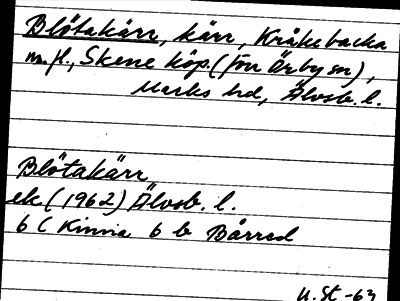 Blötakärr, kärr, Kråkebacka
m. fl., Skene köp. (förr Örby sn),
Marks hd, Älvsb. l.
Blötakärr
ek (1962) Älvsb. l.
6 C Kinna 6 b Bårred
U. St. -63